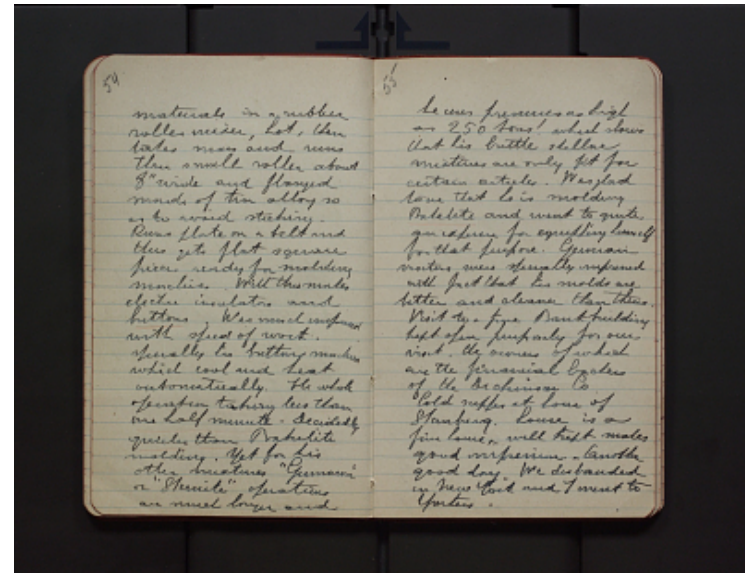 54
materials in a rubber
roller mixer, hot, then
takes mass and runs
thru small roller about
8" wide and flanged
made of tin alloy so
as to avoid sticking.
Runs plate on a belt and
thus gets flat square
pieces ready for molding
machine. With this makes
electric insulators and
buttons. Was much impressed
with speed of work.
specially his button machines
which cool and heat
automatically. The whole
operation taking less than
one half minute. Decidedly
quicker than Bakelite
molding. Yet for his
other mixtures
or "Hemite" operations
are much longer and
55
he uses pressures as high
as 250 tons! which shows
that his brittle shellac
mixtures are only fit for
certain articles. Was glad
to see that he is molding
Bakelite and went to quite
an expense for equipping himself
for that purpose. German
visitors were specially impressed
with fact that his molds are
better and cleaner than theirs.
Visit to a fine Bank building
kept open purposely for our
visit. The owners of which
are the financial backers
of the Dickinson Co.
Cold supper at house of
house is a
fine house, well kept makes
good impression. Another
good day. We disbanded
in New York and I went to
Yonkers.